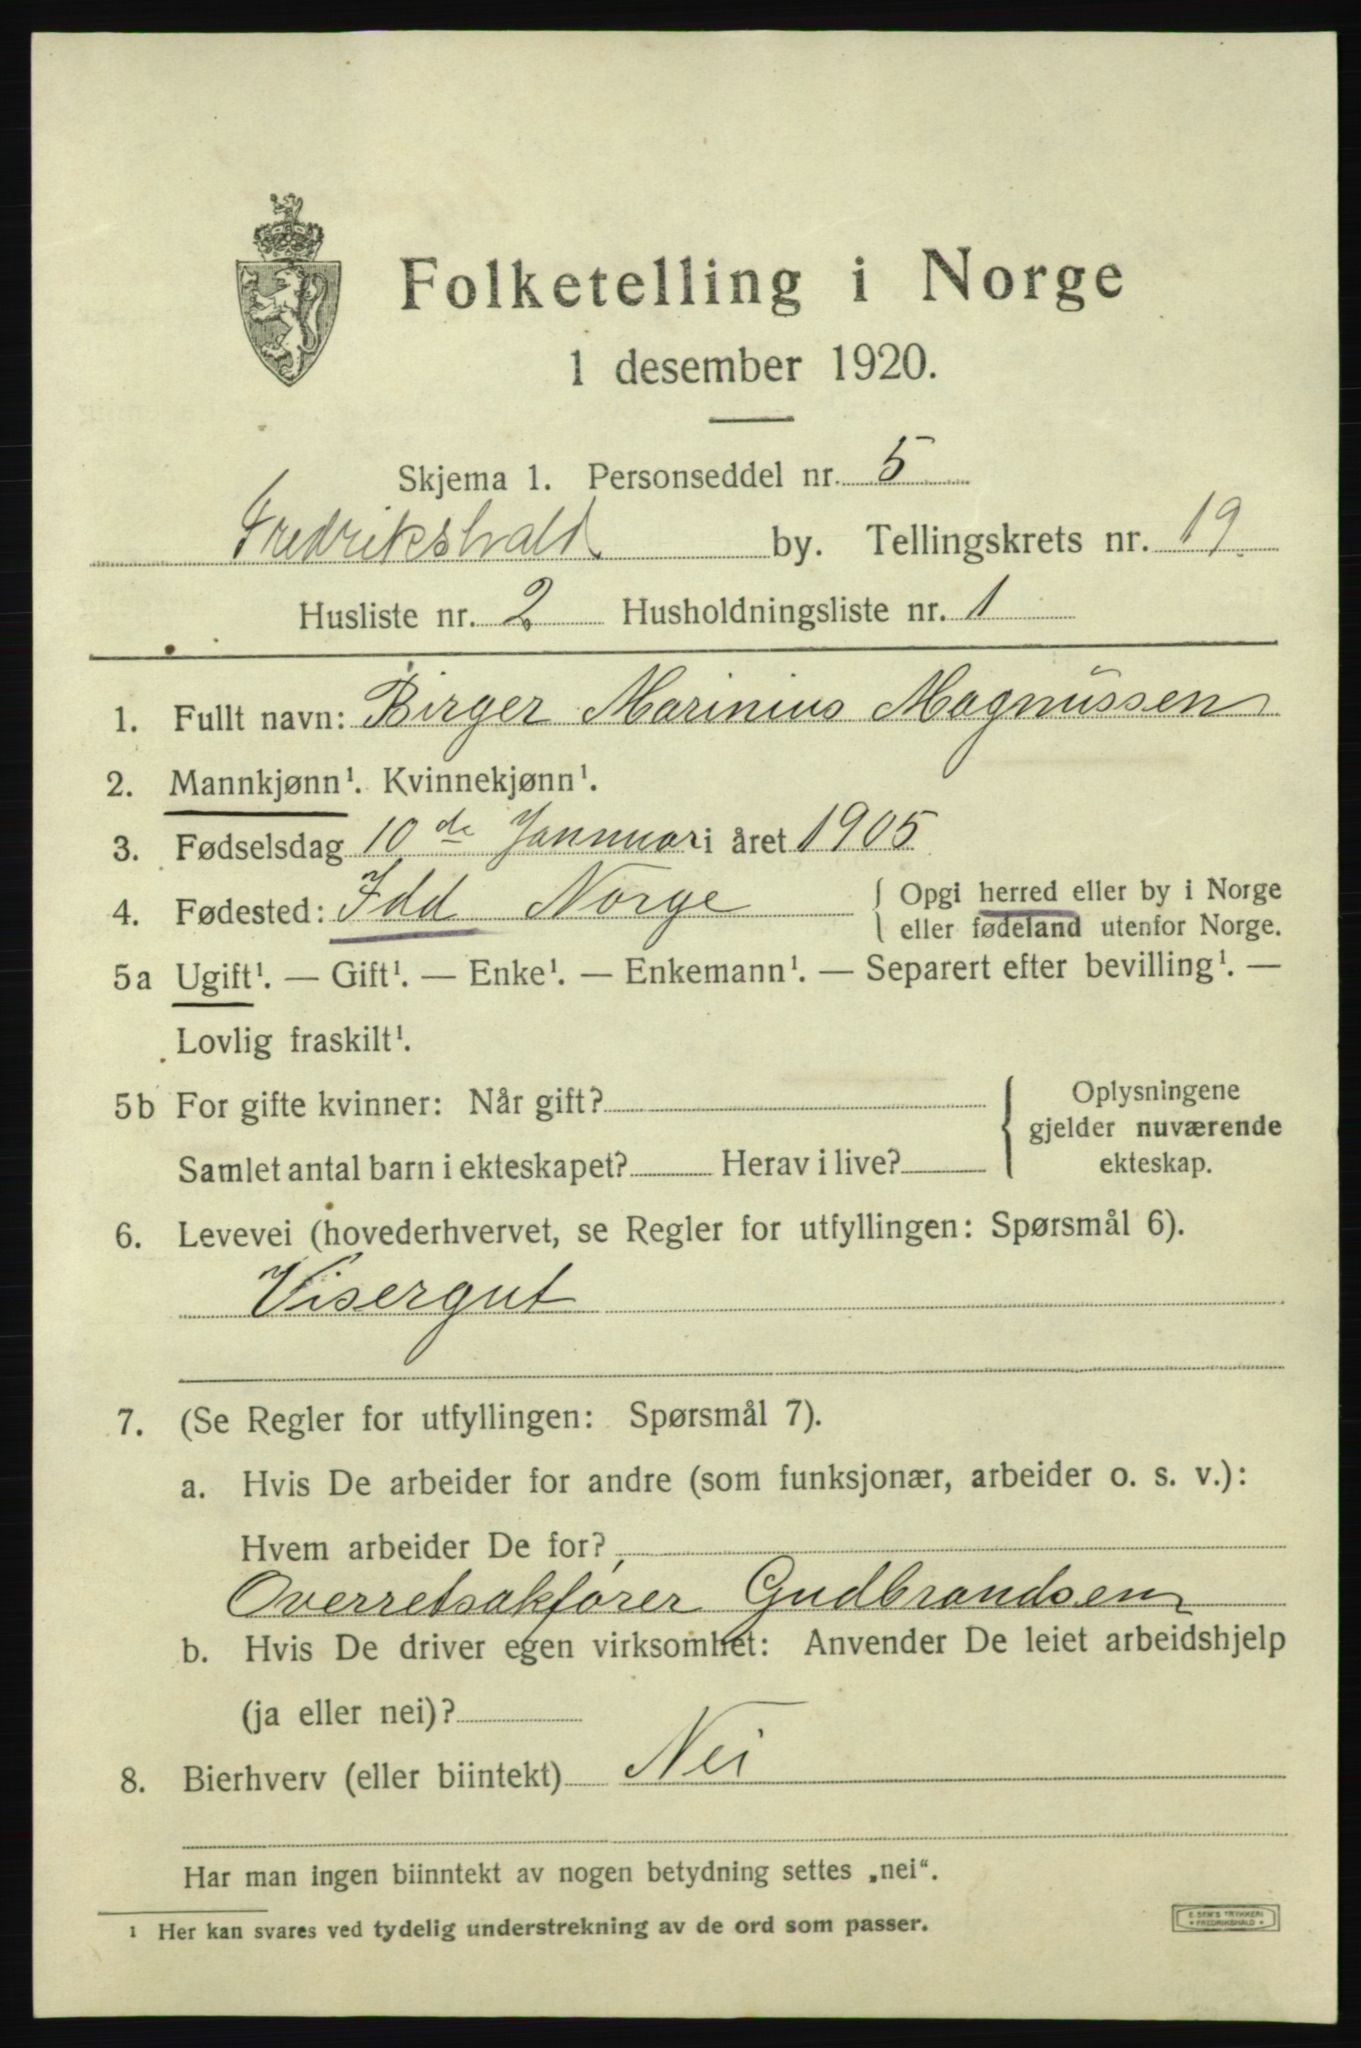 Folketelling i Norge
1 desember 1920.
Skjema 1. Personseddel nr. 5
Fredrikshald by. Tellingskrets nr. 19.
Husliste nr. 2 Husholdningsliste nr. 1
1. Fullt navn: Birger Marinius Magnussen
2. Mannkjønn¹. Kvinnekjønn¹.
3. Fødselsdag 10 de Januar i året 1905
4. Fødested: Idd Norge { Opgi herred eller by i Norge
eller fødeland utenfor Norge.
5a Ugift¹. — Gift¹. — Enke¹. — Enkemann¹. — Separert efter bevilling¹. —
Lovlig fraskilt¹.
5b For gifte kvinner: Når gift? { Oplysningene
gjelder nuværende
Samlet antal barn i ekteskapet? Herav i live? ekteskap.
6. Levevei (hovederhvervet, se Regler for utfyllingen: Spørsmål 6).
Visergut
7. (Se Regler for utfyllingen: Spørsmål 7).
a. Hvis De arbeider for andre (som funksjonær, arbeider o. s. v.):
Hvem arbeider De for?
Overretsakfører Gudbrandsen
b. Hvis De driver egen virksomhet: Anvender De leiet arbeidshjelp
(ja eller nei)?
8. Bierhverv (eller biintekt) Nei
Har man ingen biinntekt av nogen betydning settes „nei“.
¹ Her kan svares ved tydelig understrekning av de ord som passer.
E. SEM'S TRYKKERI
• FREDRIKSHALD •